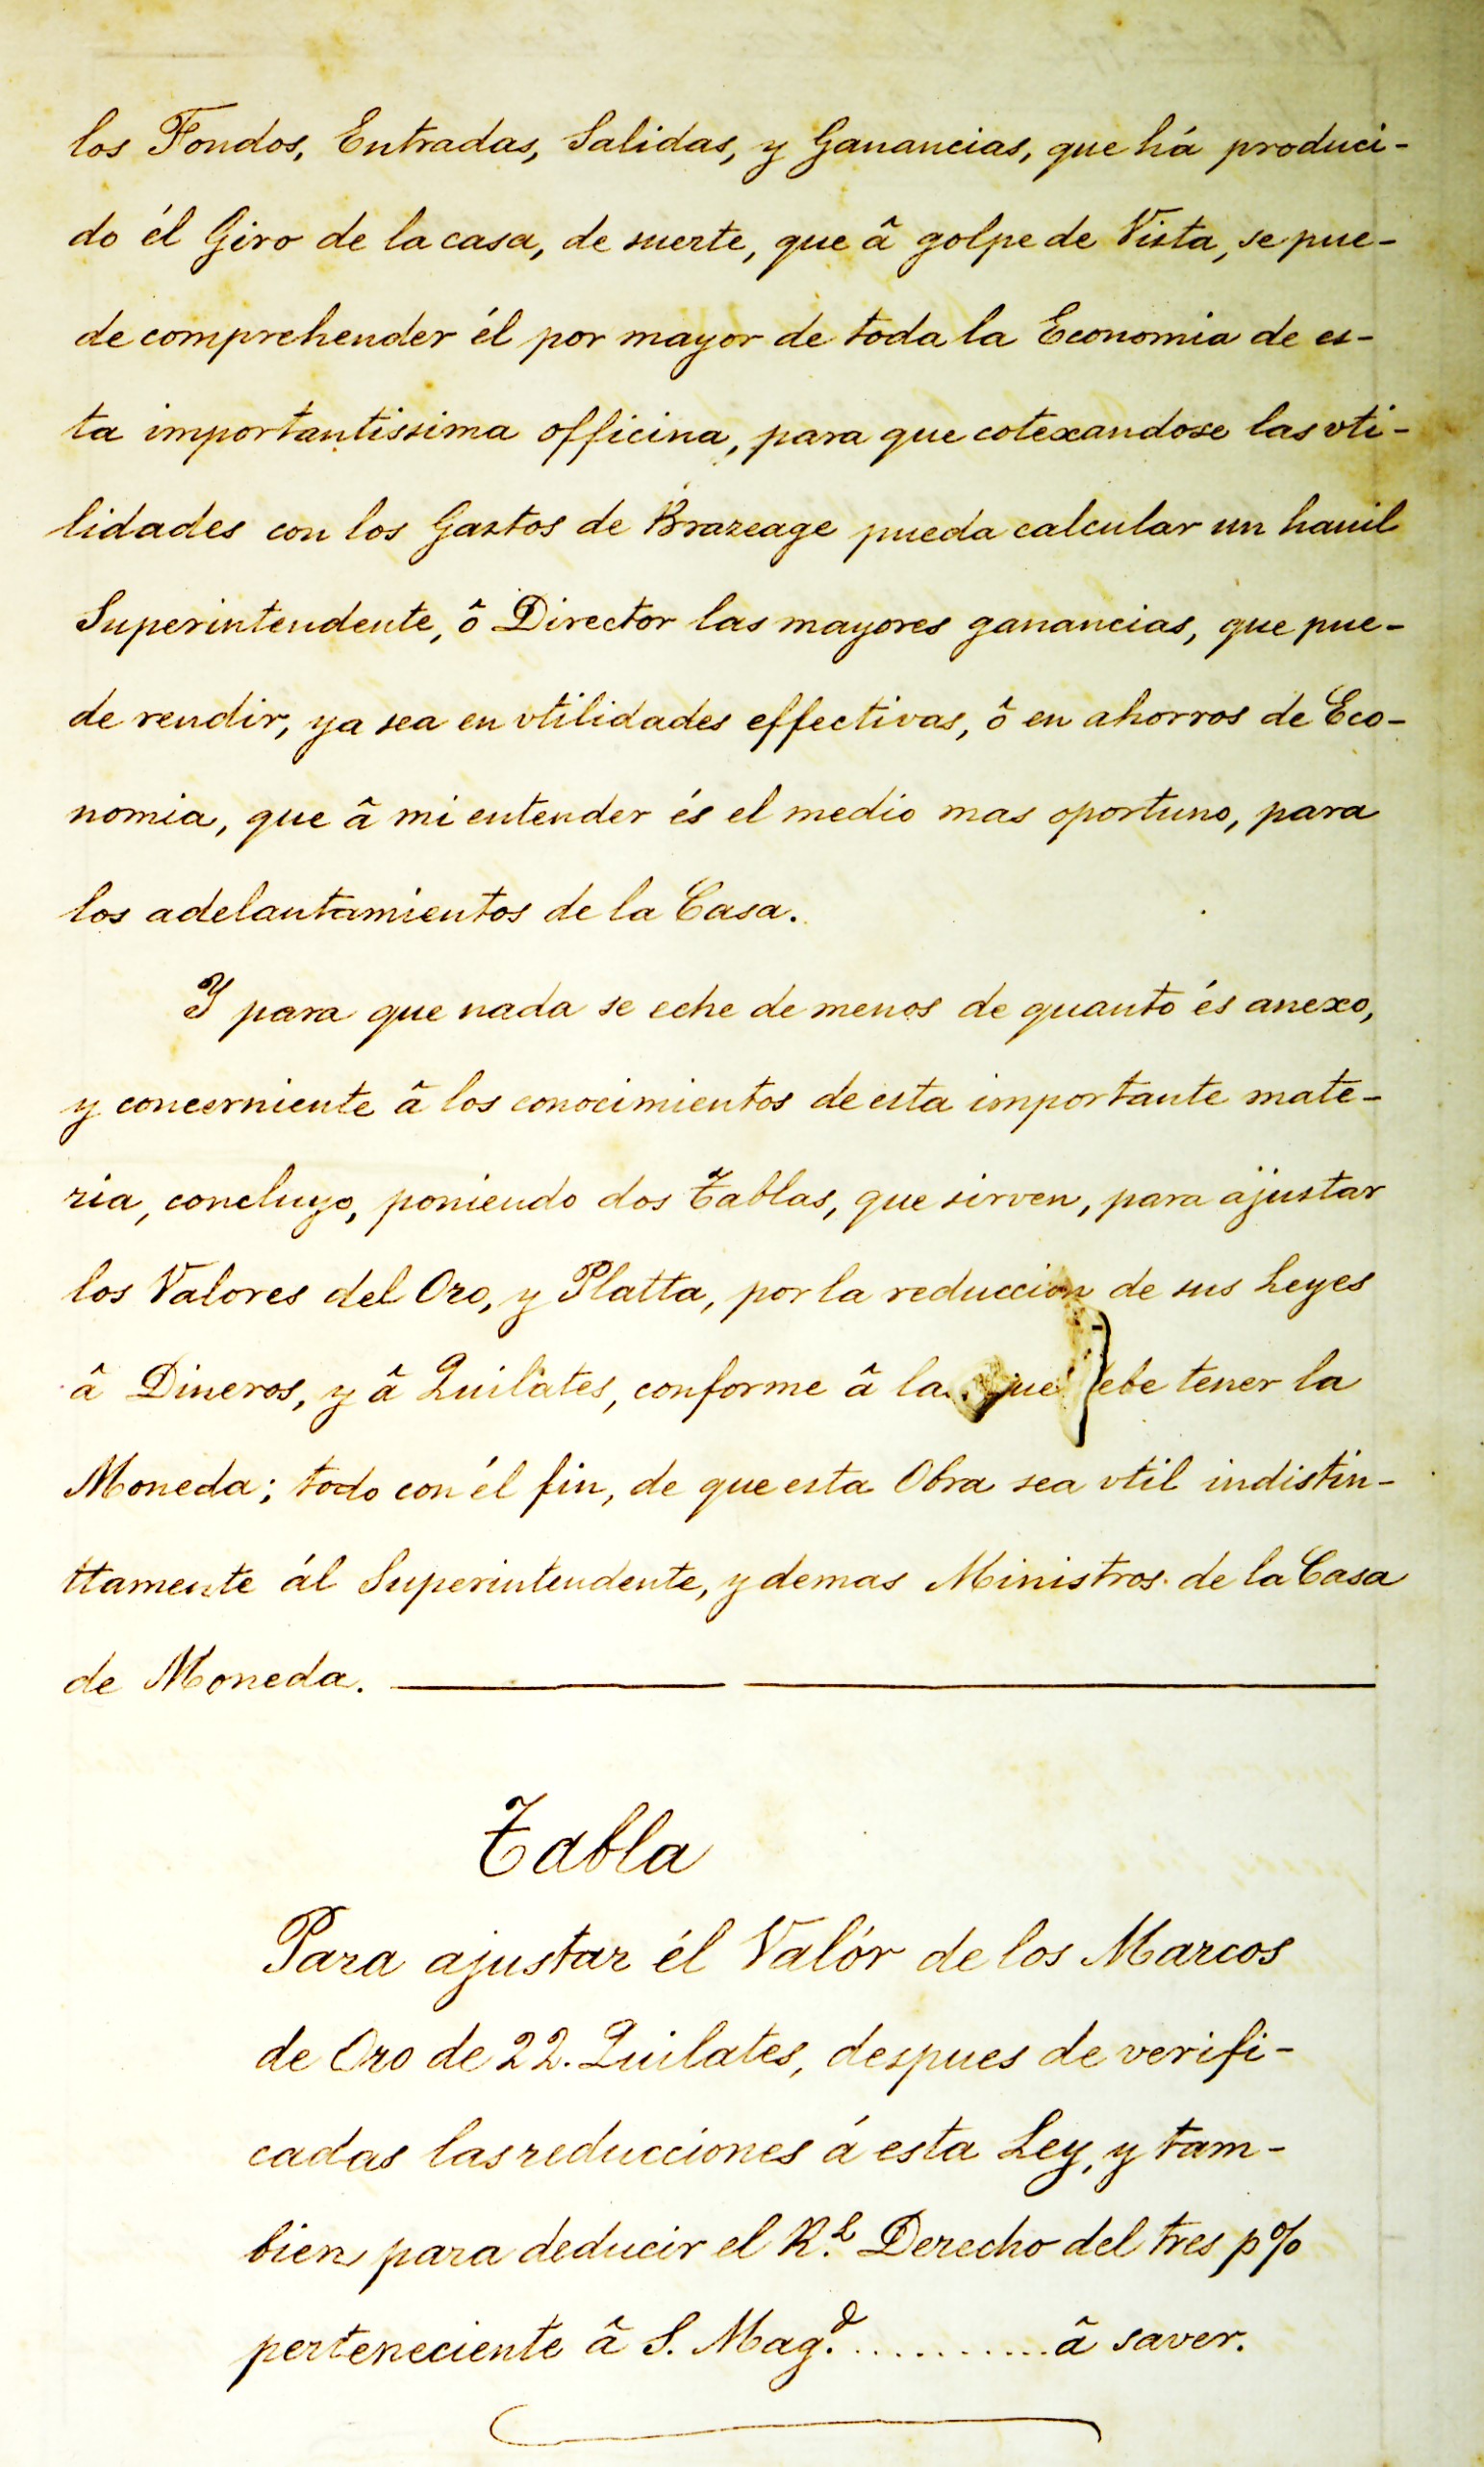 los Fondos, Entradas, Salidas, y Ganancias, que há produci-
do él Giro de la casa, de suerte, que â golpe de Vista, se pue-
de comprehender él por mayor de toda la Economia de es-
ta importantissima officina, para que cotexandose las vti-
lidades con los Gastos de Brazeage pueda calcular un hauil
Superintendente, ô Director las mayores ganancias, que pue-
de rendir, ya sea en vtilidades effectivas, ô en ahorros de Eco-
nomia, que â mi entender és el medio mas oportuno, para
los adelantamientos de la Casa.
Y para que nada se eche de menos de quanto és anexo,
y concerniente â los conocimientos de esta importante mate-
ria, concluyo, poniendo dos Tablas, que sirven, para ajustar
los Valores del Oro, y Platta, por la reduccion de sus Leyes
â Dineros, y â Quilates, conforme â la que debe tener la
Moneda; todo con él fin, de que esta Obra sea vtil indistin-
ttamente ál Superintendente, y demas Ministros de la Casa
de Moneda.
Tabla
Para ajustar él Valór de los Marcos
de Oro de 22. Quilates, despues de verifi-
cadas las reducciones á esta Ley, y tam-
bien para deducir el R.l Derecho del tres p%
perteneciente â S. Mag.d ........... â saver.